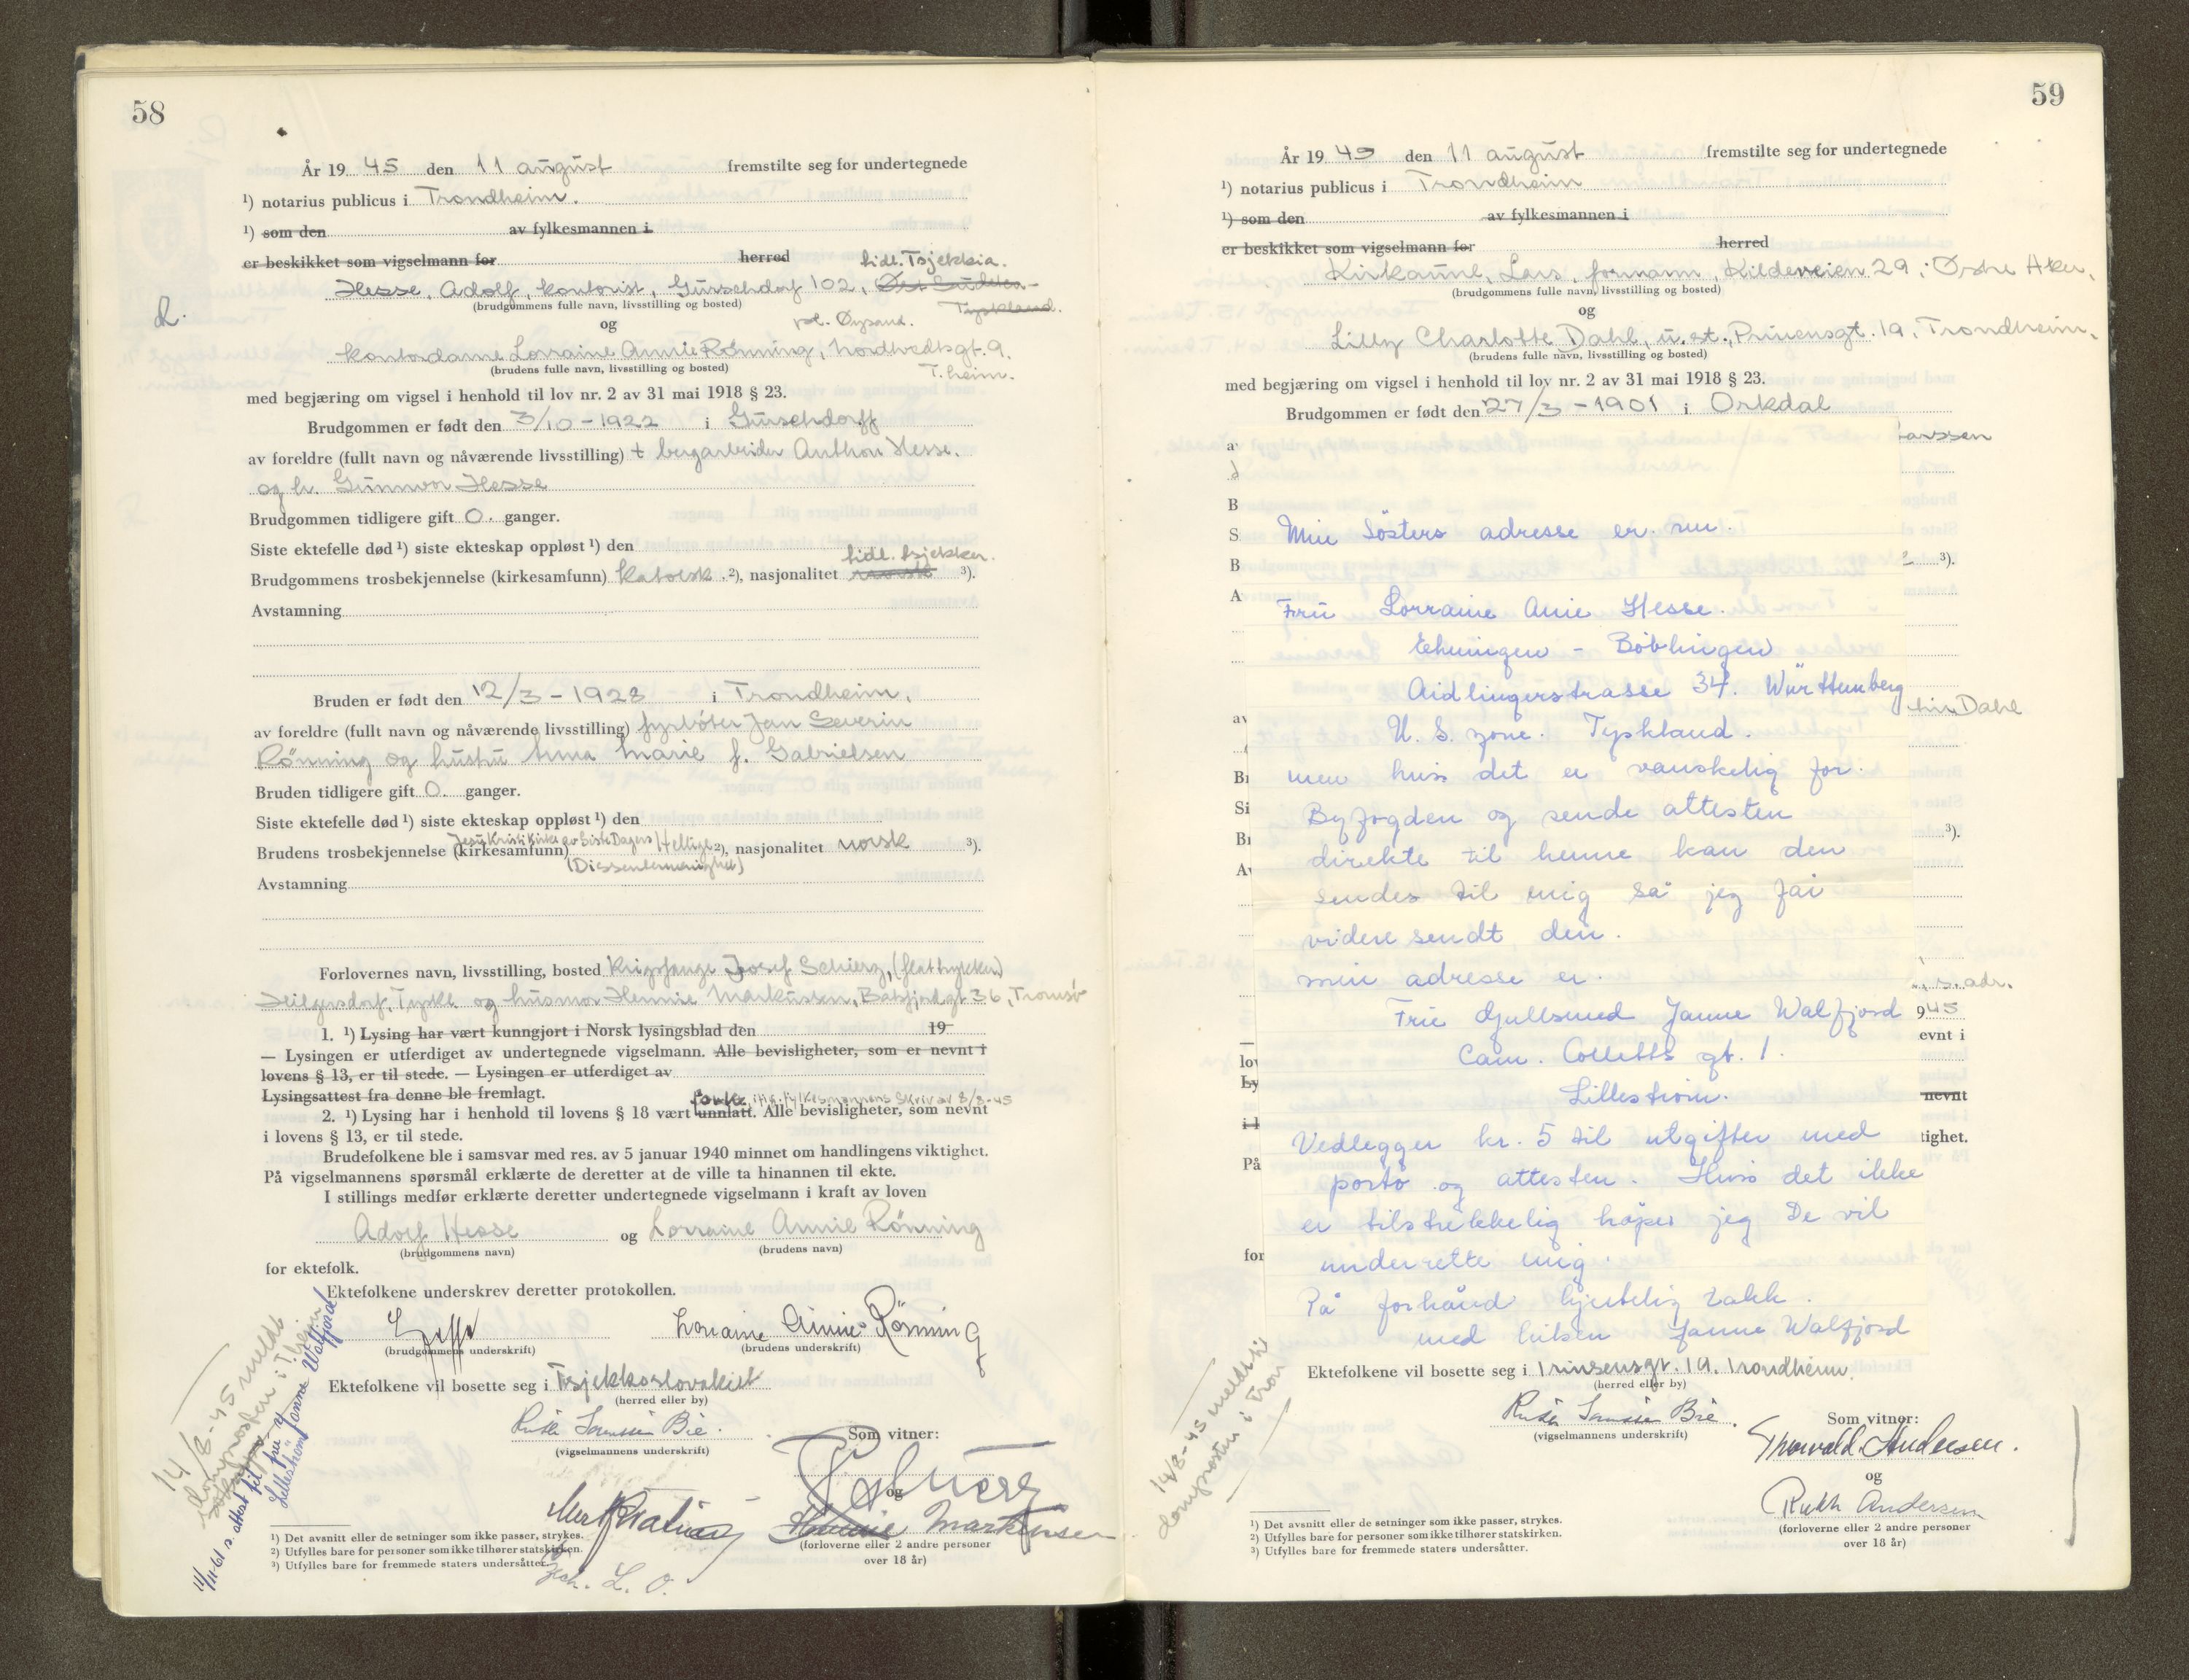 58
År 1945 den 11 august fremstilte seg for undertegnede
¹) notarius publicus i Trondheim.
¹) som den av fylkesmannen i
er beskikket som vigselmann for herred tidl. Tsjekkia.
Hesse, Adolf, kontorist, Gurschdorf 102, Øst Sudeten-
(brudgommens fulle navn, livsstilling og bosted) Tyskland.
og pt. Øysand.
kontordame Lorraine Annie Rønning, Nordtvedtsgt. 9,
(brudens fulle navn, livsstilling og bosted) T.heim.
med begjæring om vigsel i henhold til lov nr. 2 av 31 mai 1918 § 23.
Brudgommen er født den 3/10-1922 i Gurschdorff
av foreldre (fullt navn og nåværende livsstilling) + bergarbeider Anthon Hesse,
og h. Gunnvor Hesse
Brudgommen tidligere gift 0. ganger.
Siste ektefelle død¹) siste ekteskap oppløst¹) den
tidl. tsjekker.
Brudgommens trosbekjennelse (kirkesamfunn) katolsk.²), nasjonalitet norsk ³).
Avstamning
Bruden er født den 12/3-1928 i Trondheim,
av foreldre (fullt navn og nåværende livsstilling) fyrbøter Jan Severin
Rønning og hustru Anna Marie f. Gabrielsen
Bruden tidligere gift 0. ganger.
Siste ektefelle død¹) siste ekteskap oppløst¹) den
Jesu Kristi Kirke av Siste Dagers Hellige
Brudens trosbekjennelse (kirkesamfunn) ²), nasjonalitet norsk ³).
(Dissentermenighet)
Avstamning
Forlovernes navn, livsstilling, bosted krigsfange Josef Schierz, (flattrykker)
Heilgersdorf, Tyskl. og husmor Hennie Markussen, Balsfjordgt 36, Tromsø
1. ¹) Lysing har vært kunngjort i Norsk lysingsblad den 19
— Lysingen er utferdiget av undertegnede vigselmann. Alle bevisligheter, som er nevnt i
lovens § 13, er til stede. — Lysingen er utferdiget av
Lysingsattest fra denne ble fremlagt.
iflg. fylkesmannens skriv av 8/8-45
2. ¹) Lysing har i henhold til lovens § 18 vært unnlatt. Alle bevisligheter, som nevnt
i lovens § 13, er til stede.
Brudefolkene ble i samsvar med res. av 5 januar 1940 minnet om handlingens viktighet.
På vigselmannens spørsmål erklærte de deretter at de ville ta hinannen til ekte.
I stillings medfør erklærte deretter undertegnede vigselmann i kraft av loven
Adolf Hesse og Lorraine Annie Rønning
(brudgommens navn) (brudens navn)
for ektefolk.
Ektefolkene underskrev deretter protokollen.
Hesse Lorraine Annie Rønning
(brudgommens underskrift) (brudens underskrift)
Ektefolkene vil bosette seg i Tsjekkoslovakiet
(herred eller by)
(vigselmannens underskrift)
Som vitner:
og
Hennie Markussen
(forloverne eller 2 andre personer
over 18 år)
14/8-45 meldt
domprosten i T.heim
11/11-61 s. attest til fru
Lillestrøm Janne Walfjord
¹) Det avsnitt eller de setninger som ikke passer, strykes.
²) Utfylles bare for personer som ikke tilhører statskirken.
³) Utfylles bare for fremmede staters undersåtter.
59
År 1945 den 11 august fremstilte seg for undertegnede
¹) notarius publicus i Trondheim
¹) som den av fylkesmannen i
er beskikket som vigselmann for herred
Kirkaune, Lars, formann, Kildeveien 29, Østre Aker,
(brudgommens fulle navn, livsstilling og bosted)
og
Lilly Charlotte Dahl, u. st., Prinsensgt. 19, Trondheim,
(brudens fulle navn, livsstilling og bosted)
med begjæring om vigsel i henhold til lov nr. 2 av 31 mai 1918 § 23.
Brudgommen er født den 27/3-1901 i Orkdal
Min Søsters adresse er nu.
Fru Lorraine Anie Hesse.
Ehningen - Böblingen
Aidlingerstrasse 34. Württemberg
U. S. zone. Tyskland.
men hvis det er vanskelig for.
Byfogden og sende attesten
direkte til henne kan den
sendes til mig så jeg får
videre sendt den.
min adresse er.
Fru Gullmund Janne Walfjord
Cam. Colletts gt. 1.
Lillestrøm.
Vedlegger kr. 5 til utgifter med
porto og attesten. Hvis det ikke
er tilstrekkelig håper jeg De vil
underrette mig.
På forhånd hjertelig takk.
med hilsen Janne Walfjord
Dahl
s. adr.
945
evnt i
nevnt
tighet.
Ektefolkene vil bosette seg i Prinsensgt. 19, Trondheim.
(herred eller by)
(vigselmannens underskrift)
Som vitner:
Thorvald Andersen.
og
Ruth Andersen
(forloverne eller 2 andre personer
over 18 år)
14/8-45 meldt til
domprosten i Tron
¹) Det avsnitt eller de setninger som ikke passer, strykes.
²) Utfylles bare for personer som ikke tilhører statskirken.
³) Utfylles bare for fremmede staters undersåtter.